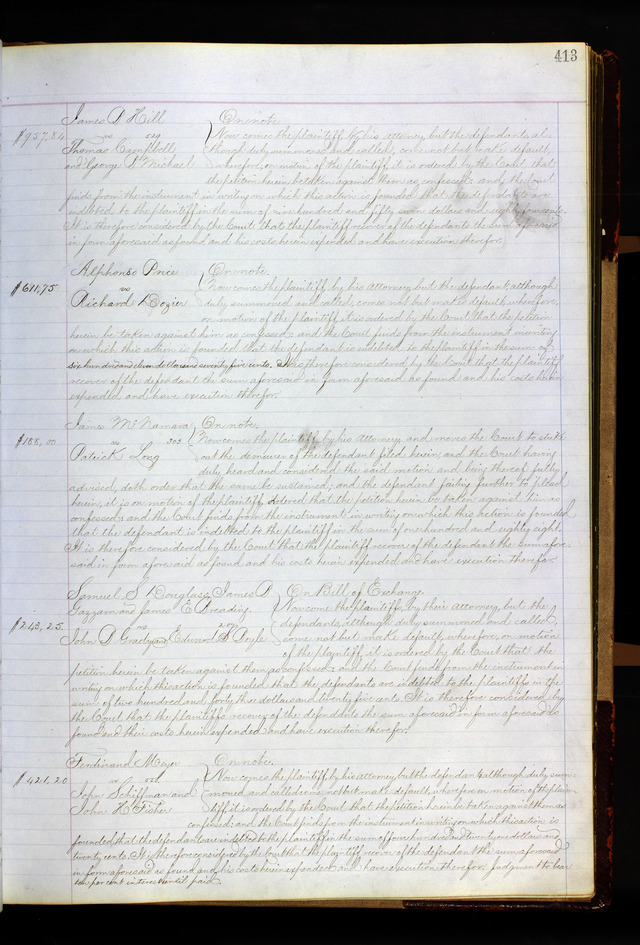 413
James D Hill } On note.
$957,84 vs 529 Now comes the plaintiff by his Attorney but the defendants, al-
Thomas Campbell though duly summoned and called, come not but make default,
and George D Michael wherefore, on motion of the plaintiff it is ordered by the Court that
the petition herein be taken against them as confessed: and the Court
finds from the instrument in writing on which this action is founded that the defendants are
indebted to the plaintiff in the sum of nine hundred and fifty seven dollars and eighty four cents.
It is therefore considered by the Court that the plaintiff recover of the defendants the sum aforesaid
in form aforesaid as found and his costs herein expended and have execution therefor.
Alphonso Price } On note.
$611,75 vs Now comes the plaintiff by his Attorney but the defendant, although
Richard Dozier duly summoned and called, comes not but makes default, wherefore,
on motion of the plaintiff it is ordered by the Court that the petition
herein be taken against him as confessed: and the Court finds from the instrument in writing
on which this action is founded that the defendant is indebted to the plaintiff in the sum of
six hundred and eleven dollars and seventy five cents. It is therefore considered by the Court that the plaintiff
recover of the defendant the sum aforesaid in form aforesaid as found and his costs herein
expended and have execution therefor.
James McNamara } On note.
$188,00 vs 303 Now comes the plaintiff by his Attorney and moves the Court to strike
Patrick Long out the demurrer of the defendant filed herein; and the Court having
duly heard and considered the said motion and being thereof fully
advised, doth order that the same be sustained; and the defendant failing further to plead
herein, it is on motion of the plaintiff, ordered that the petition herein be taken against him as
confessed: and the Court finds from the instrument in writing on which this action is founded
that the defendant is indebted to the plaintiff in the sum of one hundred and eighty eight
It is therefore considered by the Court that the plaintiff recover of the defendant the sum afore-
said in form aforesaid as found and his costs herein expended and have execution therefor.
Samuel S Douglass, James D } On Bill of Exchange.
Gazzam and James E Breading Now come the plaintiffs by their Attorney, but the
$243,25 vs defendants, although duly summoned and called,
John D Grady and Edward D Poyle come not but make default, wherefore, on motion
of the plaintiff it is ordered by the Court that the
petition herein be taken against them as confessed: and the Court finds from the instrument in
writing on which this action is founded that the defendants are indebted to the plaintiffs in the
sum of two hundred and forty three dollars and twenty five cents. It is therefore considered by
the Court that the plaintiffs recover of the defendants the sum aforesaid in form aforesaid as
found and their costs herein expended and have execution therefor.
Ferdinand Meyer } On note.
$421,20 vs Now comes the plaintiff by his attorney, but the defendants although duly sum-
John Schiffman and moned and called come not but make default, wherefore on motion of the plain-
John H Fisher tiff it is ordered by the Court that the petition herein be taken against them as
confessed: and the Court finds from the instrument in writing on which this action is
founded that the defendants are indebted to the plaintiff in the sum of four hundred and twenty one dollars and
twenty cents. It is therefore considered by the Court that the plaintiff recover of the defendants the sum aforesaid
in form aforesaid as found and his costs herein expended and have execution therefor. Judgment to bear
ten per cent interest until paid.